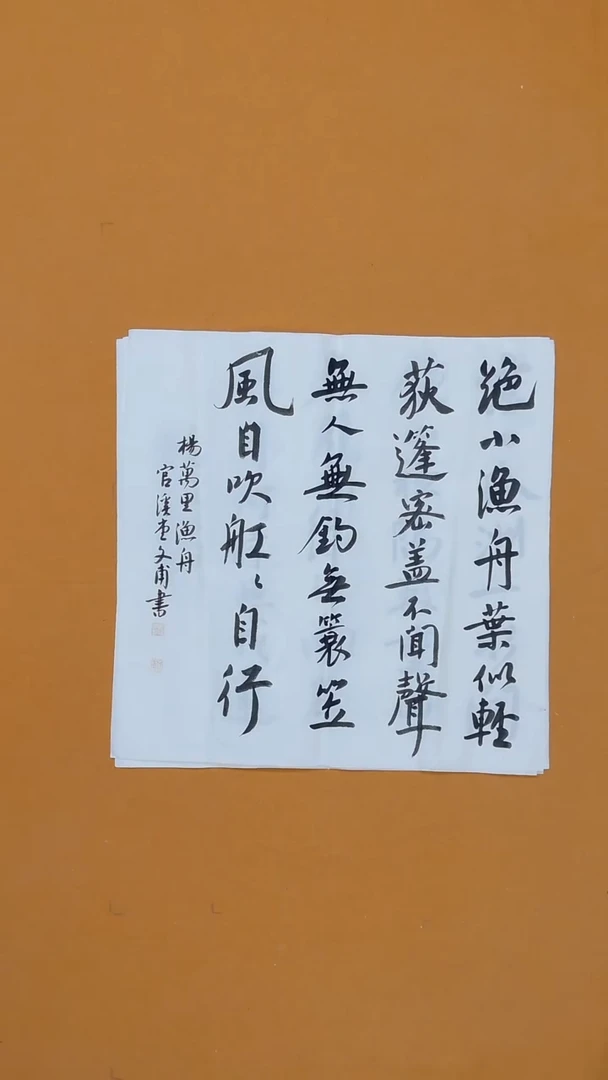 絶小漁舟葉似輕
荻篷密盖不聞聲
無人無釣無簑笠
風自吹舡〻自行
楊萬里漁舟
官溪堂文甫書